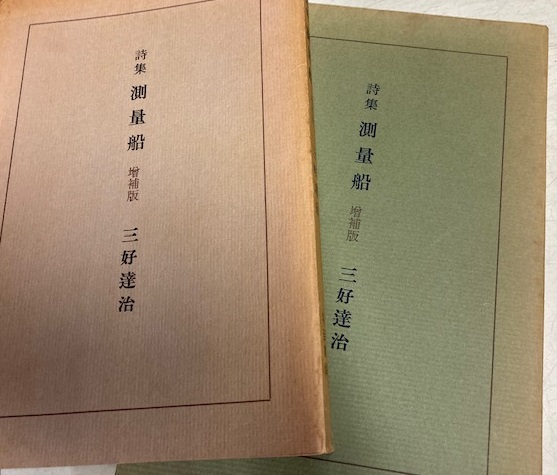 詩集 測量船 增補版 三好達治
詩集 測量船 增補版 三好達治